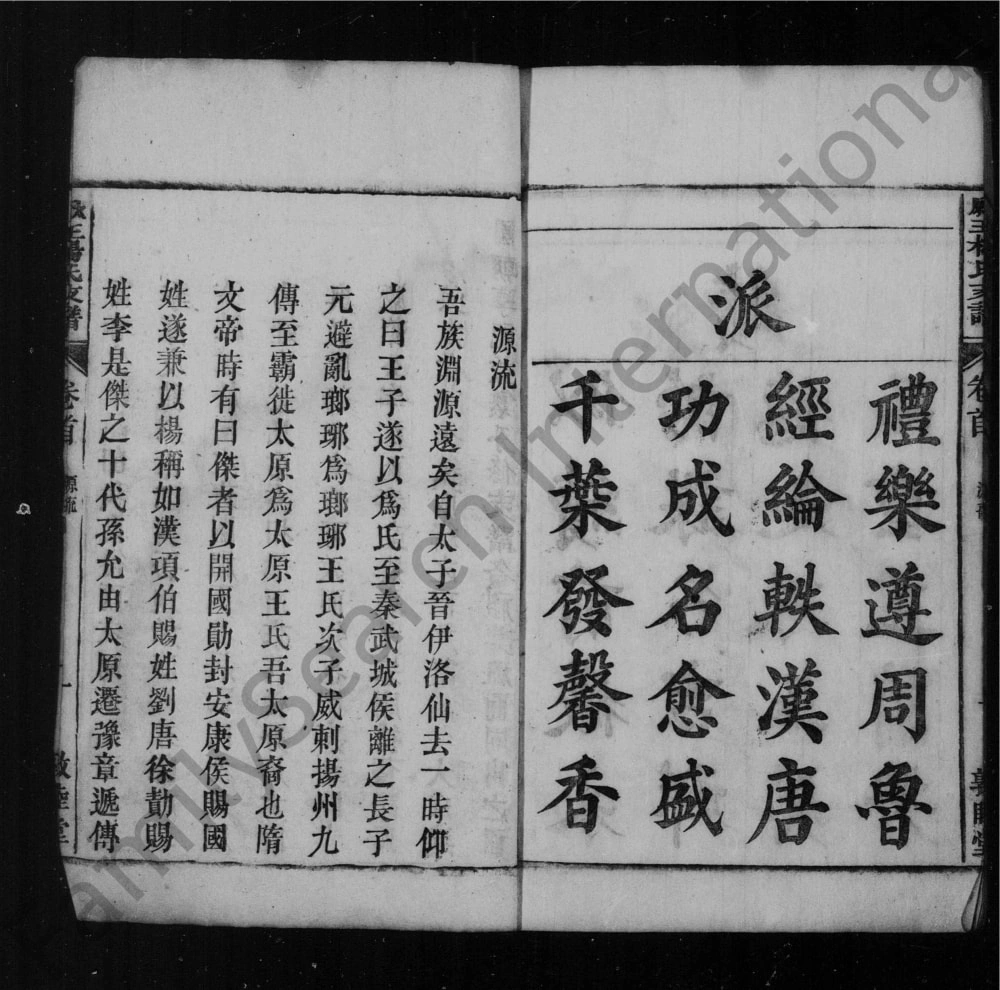 派
禮樂遵周魯
經綸軼漢唐
功成名愈盛
千葉發馨香
源流
吾族淵源遠矣自太子晉伊洛仙去一時仰
之曰王子遂以爲氏至秦武城侯離之長子
元避亂瑯琊爲瑯琊王氏次子威刺揚州九
傳至霸徙太原爲太原王氏吾太原裔也隋
文帝時有曰傑者以開國勛封安康侯賜國
姓遂兼以楊稱如漢項伯賜姓劉唐徐勣賜
姓李是傑之十代孫允由太原遷豫章遞傳
王楊氏支譜
卷首
源流
FamilySearch International